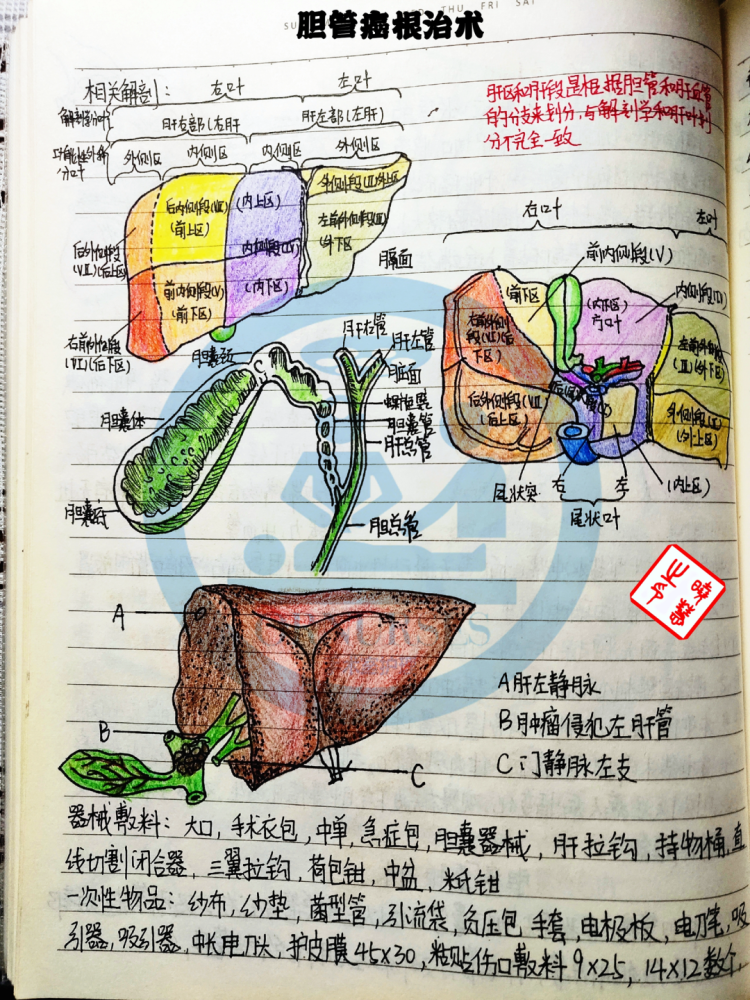 THU FRI SAT
胆管癌根治术
相关解剖: 右叶 左叶
解剖学分叶 肝右部(右肝 肝左部(左肝)
外侧区 内侧区 内侧区 外侧区
分叶
肝区和肝段是根据胆管和肝血管
的分支来划分,与解剖学和肝叶划
分不完全一致
后内侧段(VIII)
(前上区)
(内上区)
外侧段(II)外上区)
左前外侧段(III)
(外下区
后外侧段
(VII)(后上区)
前内侧段(V)
(前下区)
内侧段(IV)
(内下区)
右前外侧段
(VI)(后下区)
脏面
右叶 左叶
前内侧段(V)
(前下区
(内下区)
方叶
内侧段(IV)
右前外侧
段(VI)(后
下区)
左前外侧段
(III)(外下区)
后外侧段(VII)
(后上区)
外侧段(II)
(外上区)
尾状突 右 左 (内上区)
尾状叶
胆囊颈
肝右管
肝左管
脏面
胆囊体
螺旋襞
胆囊管
肝总管
胆囊底
胆总管
A
B
C
A 肝左静脉
B 肿瘤侵犯左肝管
C 门静脉左支
器械敷料: 大口, 手术衣包, 中单, 急症包, 胆囊器械, 肝拉钩, 持物桶, 直
线切割闭合器, 三翼拉钩, 荷包钳, 中盆, 米氏钳
一次性物品: 纱布, 纱垫, 菌型管, 引流袋, 负压包 手套, 电极板, 电刀笔, 吸
引器, 吸引器, 中长电刀头, 护皮膜45×30, 粘贴伤口敷料9×25, 14×12数个,